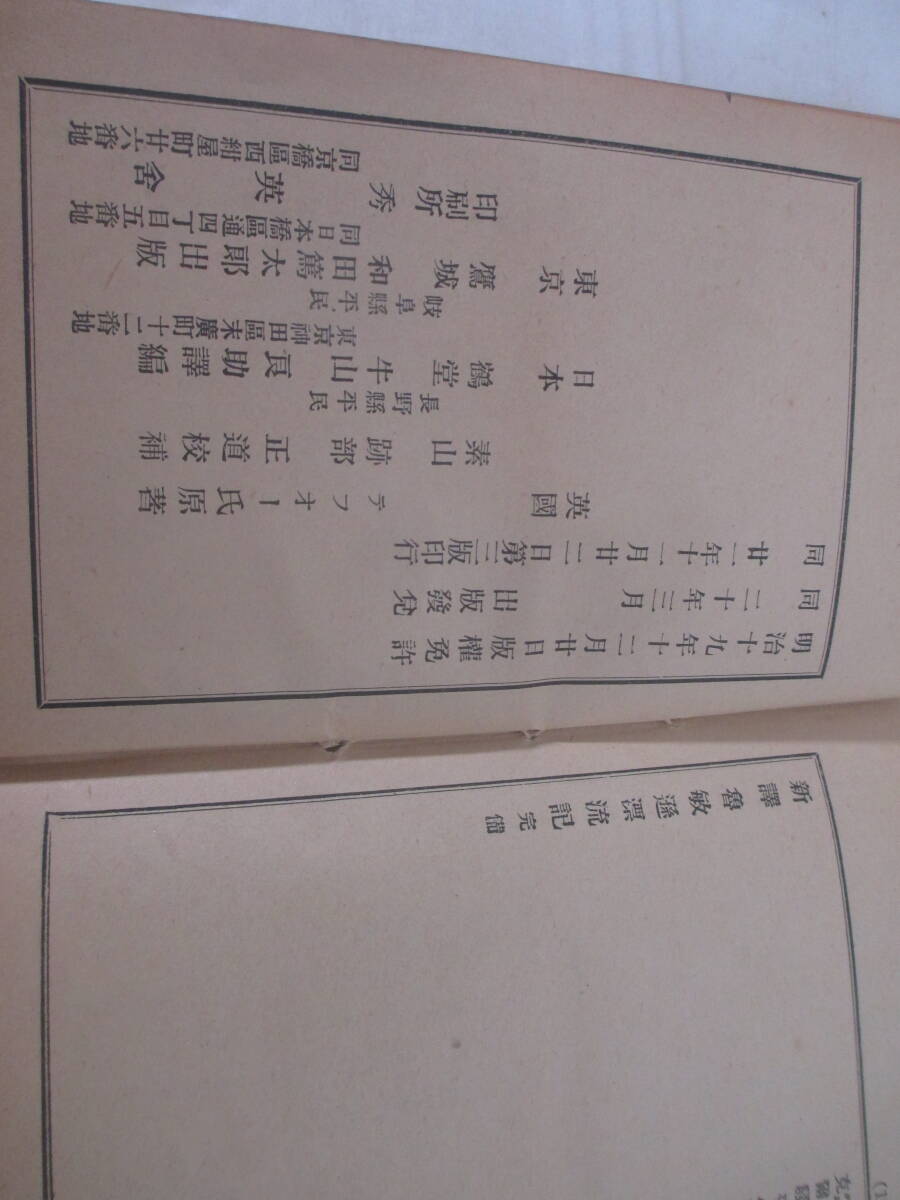 新譯魯敏遜漂流記 完備
明治十九年十二月廿日版權免許
同二十年三月 出版發兌
同 廿一年十一月廿二日第三版印行
英國 テフオー氏原著
素山 跡部正道校補
長野縣平民
日本 鶴堂 牛山良助譯編
東京神田區末廣町十二番地
岐阜縣平民
東京 鷹城 和田篤太郎出版
同日本橋區通四丁目五番地
印刷所 秀英舍
同京橋區西紺屋町廿六番地